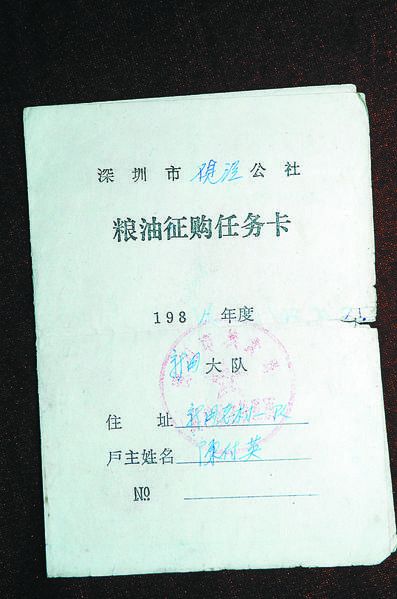 深圳市观澜公社
粮油征购任务卡
198 年度
新田大队
住址新田老村二队
户主姓名陈付英
№